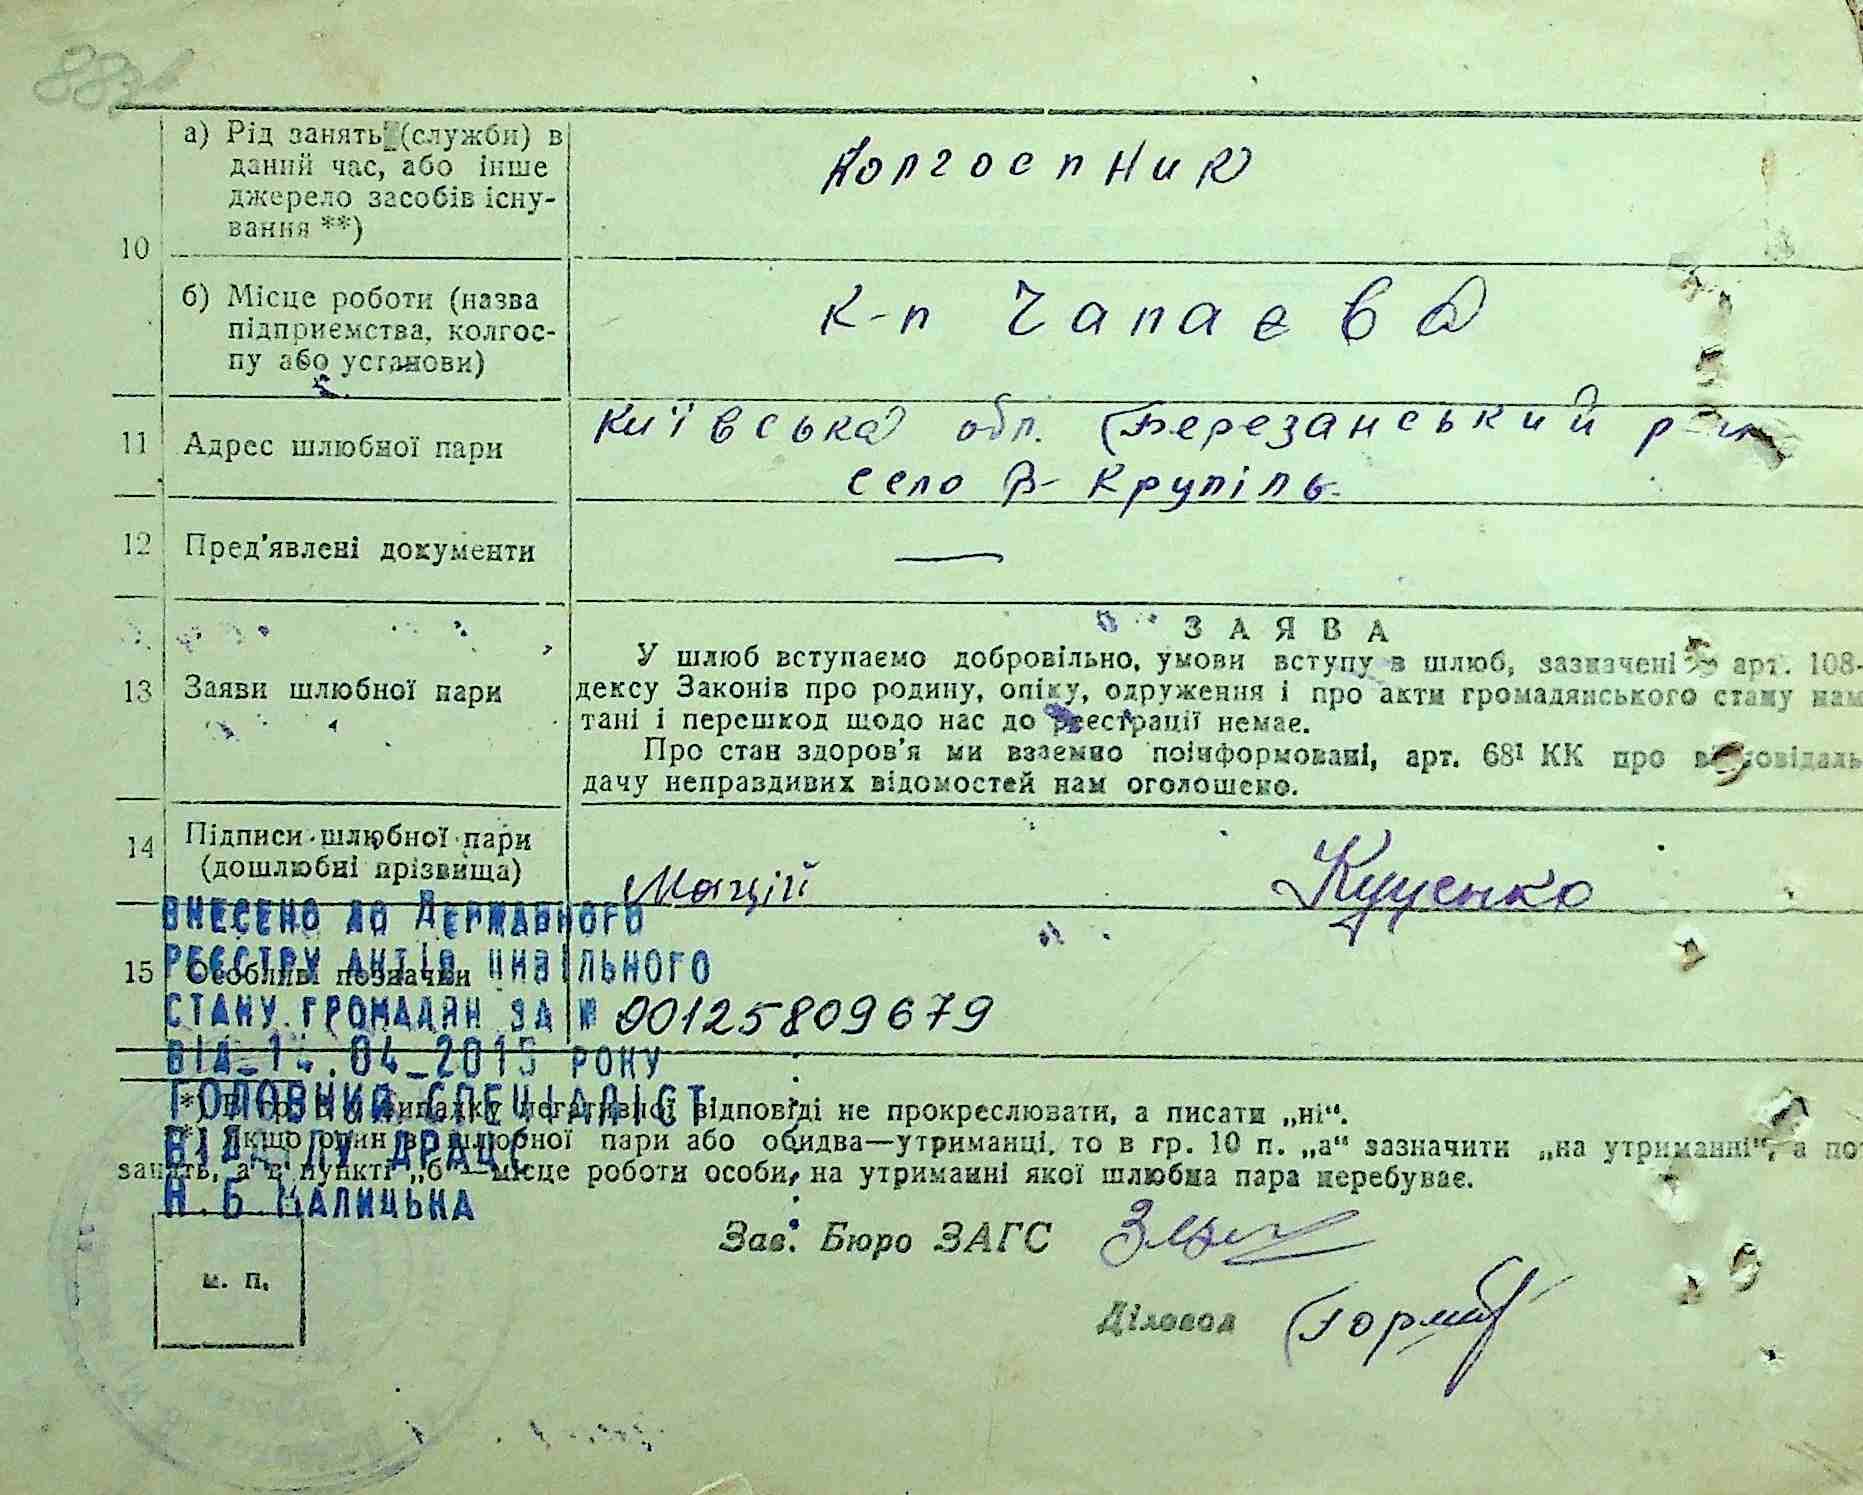 а) Рід занять (службя) в
даний час, або інше
джерело засобів існу-
вання **)
Колгоспник
10
б) Місце роботи (назва
підприємства, колгос-
пу або установи)
к-п Чапаєва
11
Адрес шлюбної пари
Київська обл. Березанський р-н
село В-Крупіль
12
Пред'явлені документи
—
13
Заяви шлюбної пари
ЗАЯВА
У шлюб вступаємо добровільно, умови вступу в шлюб, зазначені арт. 108-
дексу Законів про родину, опіку, одруження і про акти громадянського стану нам
тані і перешкод щодо нас до реєстрації немає.
Про стан здоров'я ми взаємно поінформовані, арт. 68¹ КК про відповідаль
дачу неправдивих відомостей нам оголошено.
14
Підписи шлюбної пари
(дошлюбні прізвища)
Мацій
Куценко
15
Особливі позначки
ВНЕСЕНО ДО ДЕРЖАВНОГО
РЕЄСТРУ АКТІВ ЦИВІЛЬНОГО
СТАНУ ГРОМАДЯН ЗА № 00125809679
04 2015 РОКУ
ГОЛОВНИЙ СПЕЦІАЛІСТ
ВІДДІЛУ ДРАЦС
Н.Б МАЛИЦЬКА
*) В гр. випадку негативної відповіді не прокреслювати, а писати „ні“.
**) Якщо один з шлюбної пари або обидва—утриманці, то в гр. 10 п. „а“ зазначити „на утриманні“, а пот
занять, а в пункті „б“—місце роботи особи, на утриманні якої шлюбна пара перебуває.
Зав. Бюро ЗАГС
м. п.
Діловод